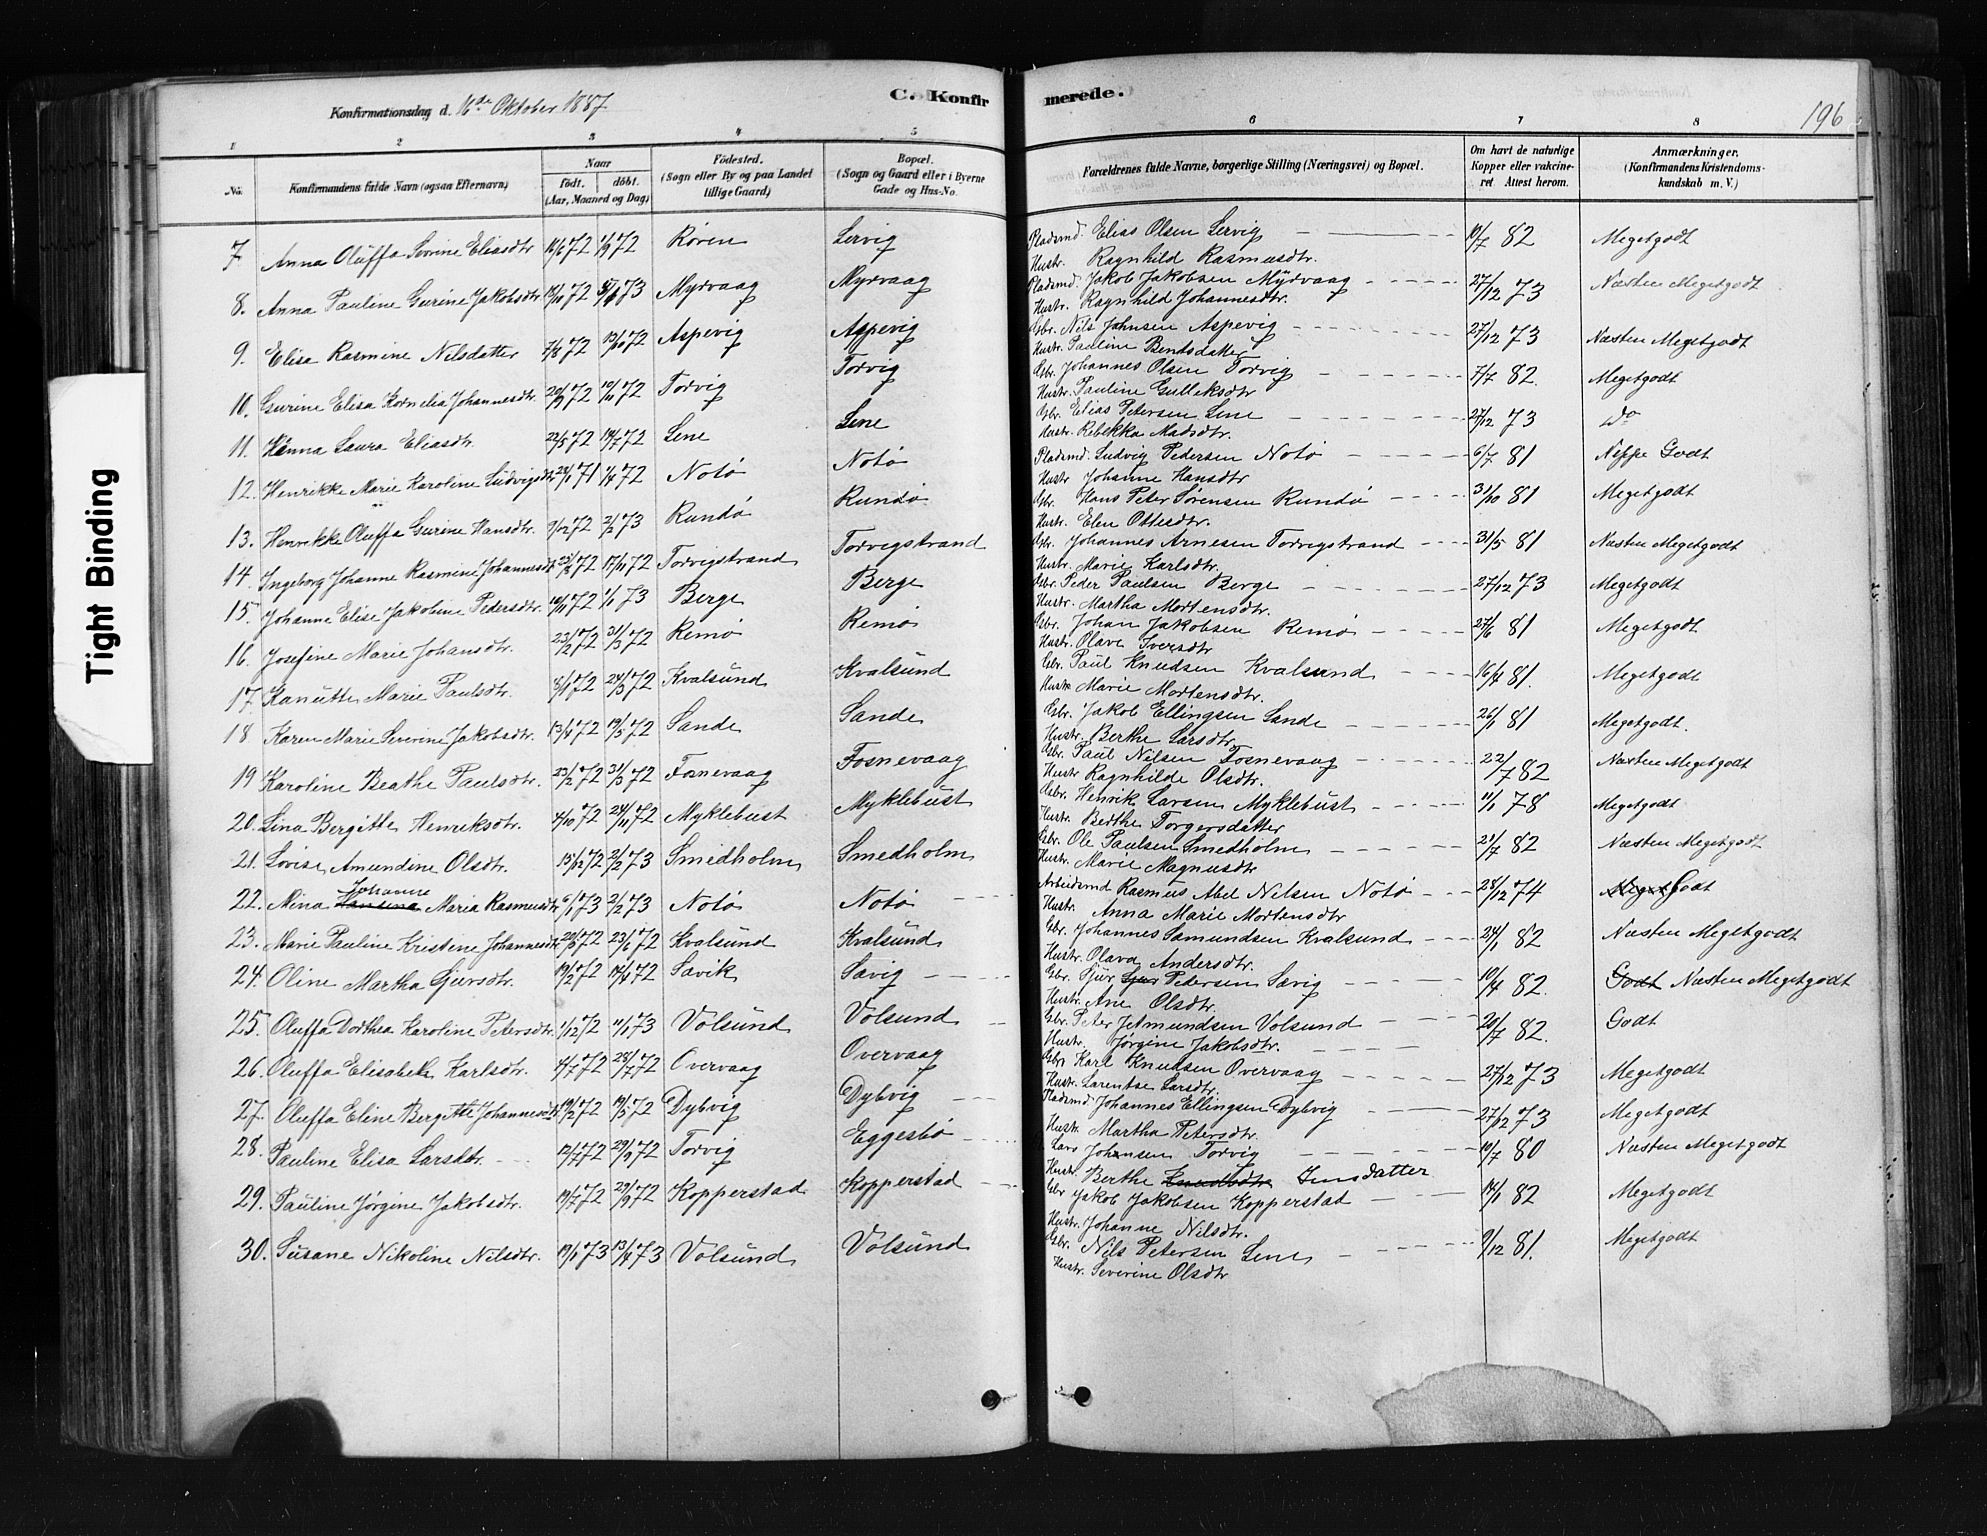 Konfirmationsdag d. 16de Oktober 1887
C. Konfirmerede.
196
1 2 3 4 5 6 7 8
No. Konfirmandens fulde Navn (ogsaa Efternavn) Naar født. døbt. (Aar, Maaned og Dag) Fødested. (Sogn eller By og paa Landet tillige Gaard) Bopæl. (Sogn og Gaard eller i Byerne Gade og Hus-No. Forældrenes fulde Navne, borgerlige Stilling (Næringsvei) og Bopæl. Om havt de naturlige Kopper eller vakcineret. Attest herom. Anmærkninger. (Konfirmandens Kristendomskundskab m. V.)
7. Anna Oluffa Severine Eliasdtr 16/6 72 1/9 72 Røren Lervig Pladsmd. Elias Olsen Lervig 19/7 82 Megetgodt
Hustr. Ragnhild Rasmusdtr.
8. Anna Pauline Gurine Jakobsdtr 72 73 Myrvaag Myrvaag Pladsmd. Jakob Jakobsen Myrvaag 27/12 73 Næsten Megetgodt
Hustr. Ragnhild Johannesdtr.
9. Elisa Rasmine Nilsdatter 7/8 72 13/10 72 Aspevig Aspevig Gbr. Nils Johnsen Aspevig 27/12 73 Næsten Megetgodt
Hustr. Pauline Bentsdatter
10. Gurine Elisa Kornelia Johannesdtr 20/9 72 10/11 72 Torvig Torvig Gbr. Johannes Olsen Torvig 7/7 82. Megetgodt
Hustr. Pauline Gulleksdtr
11. Hanna Laura Eliasdtr. 22/5 72 14/7 72 Lene Lene Gbr. Elias Petersen Lene 27/12 73 Do
Hustr. Rebekka Madsdtr.
12. Henrikke Marie Karoline Ludvigsdtr 71 1/4 72 Notø Notø Pladsmd. Ludvig Pedersen Notø 6/7 81 Neppe Godt
Hustr Johanne Hansdtr
13. Henrikke Oluffa Gurine Hansdtr. 9/12 72 2/2 73 Rundø Rundø Gbr. Hans Peter Sørensen Rundø 31/10 81 Megetgodt
Hustr. Elen Ottesdtr.
14. Ingeborg Johanne Rasmine Johannesdtr 72 17/11 72 Torvigstrand Torvigstrand Gbr. Johannes Arnesen Torvigstrand 31/5 81 Næsten Megetgodt
Hustr. Marie Karlsdtr.
15. Johanne Elise Jakoline Pedersdtr. 10/11 72 1/1 73 Berge Berge Gbr. Peder Paulsen Berge 27/12 73 Megetgodt
Hustr. Martha Mortensdtr.
16. Josefine Marie Johansdtr. 23/2 72 31/3 72 Remø Remø Gbr. Johan Jakobsen Remø 27/6 81 Megetgodt
Hustr. Olave Iversdtr
17. Kanutte Marie Paulsdtr. 8/1 72 24/3 72 Kvalsund Kvalsund Gbr. Paul Knudsen Kvalsund 16/4 81. Megetgodt
Hustr Marie Mortensdtr.
18 Karen Marie Severine Jakobsdtr. 13/4 72 19/5 72 Sande Sande Gbr. Jakob Ellingsen Sande 26/1 81 Megetgodt.
Hustr. Berthe Larsdtr.
19 Karoline Beathe Paulsdtr. 23/2 72 31/3 72 Fosnevaag Fosnevaag Gbr. Paul Nilsen Fosnevaag 22/7 82 Næsten Megetgodt
Hustr Ragnhilde Olsdtr.
20. Lina Bergitte Henriksdtr. 4/10 72 24/11 72 Myklebust Myklebust Gbr. Henrik Larsen Myklebust 11/1 78 Megetgodt
Hustr. Berthe Torgersdatter
21. Lovise Amundine Olsdtr. 15/12 72 2/2 73 Smedholm Smedholm Gbr. Ole Paulsen Smedholm 21/7 82 Næsten Megetgodt
Hustr. Marie Magnusdtr
22. Nina Johanne Maria Rasmusdtr 6/1 73 2/2 73 Notø Notø Arbeidsmd Rasmus Abel Nilsen Notø 28/12 74 Meget Godt
Hustr. Anna Marie Mortensdtr
23. Marie Pauline Kristine Johannesdtr 72 23/6 72 Kvalsund Kvalsund Gbr. Johannes Samundsen Kvalsund 24/1 82 Næsten Megetgodt
Hustr. Olava Andersdtr.
24. Oline Martha Sjursdtr. 19/2 72 14/4 72 Savik Savig Gbr. Sjur Pedersen Sævig 10/4 82. Godt Næsten Megetgodt
Hustr. Ane Olsdtr.
25. Oluffa Dorthea Karoline Petersdtr. 1/12 72 11/1 73 Volsund Volsund Gbr. Peter Jetmundsen Volsund 20/7 82. Godt
Hustr. Jørgine Jakobsdtr.
26. Oluffa Elisabeth Karlsdtr. 4/7 72 28/7 72 Overvaag Overvaag Gbr Karl Knudsen Overvaag 27/12 73 Megetgodt
Hustr. Larentse Larsdtr.
27. Oluffa Eline Bergitte Johannesdtr 19/2 72 19/5 72 Dybvig Dybvig Pladsmd Johannes Ellingsen Dybvig 27/12 73 Megetgodt
Hustr Martha Petersdtr.
28. Pauline Elisa Larsdtr. 12/7 72 29/9 72 Torvig Eggesbø Lars Johansen Torvig 19/7 80 Næsten Megetgodt
Hustr. Berthe Knudsdtr Jensdatter
29. Pauline Jørgine Jakobsdtr. 19/7 72 29/9 72 Kopperstad Kopperstad Gbr Jakob Jakobsen Kopperstad 14/1 82 Megetgodt
Hustr. Johanne Nilsdtr.
30. Susane Nikoline Nilsdtr. 19/1 73 13/4 73 Volsund Volsund Gbr. Nils Petersen Lene 9/12 81. Megetgodt
Hustr. Severine Olsdtr
Tight Binding